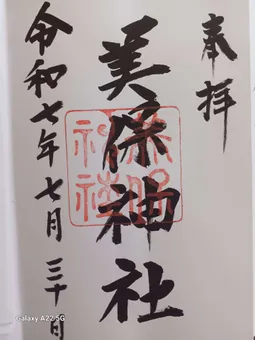 奉拝
美保神社
令和七年七月三十日
Galaxy A22 5G